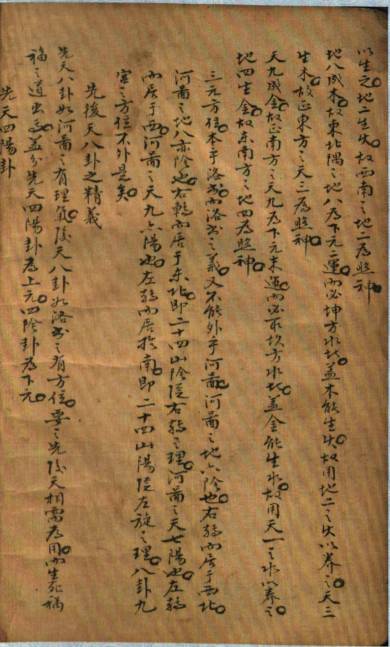 以生之地二生火。故西南之地二為照神。
地八成木。故東北隅之地八為下元二運。而必坤方水者。蓋木能生火。故用地二之火以养之。天三
生木。故正東方之天三為照神。
天九成金。故正南方之天九為下元末運。而必取坎方水者。蓋金能生水。故用天一之水以养之。
地四生金。故东南方之地四為照神。
三元方位。本乎洛書。而洛書之義。又不能外乎河圖。河圖之地六陰也。右轉而居于西北。
河圖之地八亦陰也。右轉而居于东北。即二十四山陰從右轉之理。河圖之天七陽也。左轉
而居于西。河圖之天九亦陽也。左轉而居於南。即二十四山陽從左旋之理。八卦九
宮之方位不外是矣。
先後天八卦之精義
先天八卦如河圖之有理氣。後天八卦如洛書之有方位。要之先後天相需為用。而生死禍
福之道出焉。蓋分先天四陽卦為上元。四陰卦為下元。
先天四陽卦